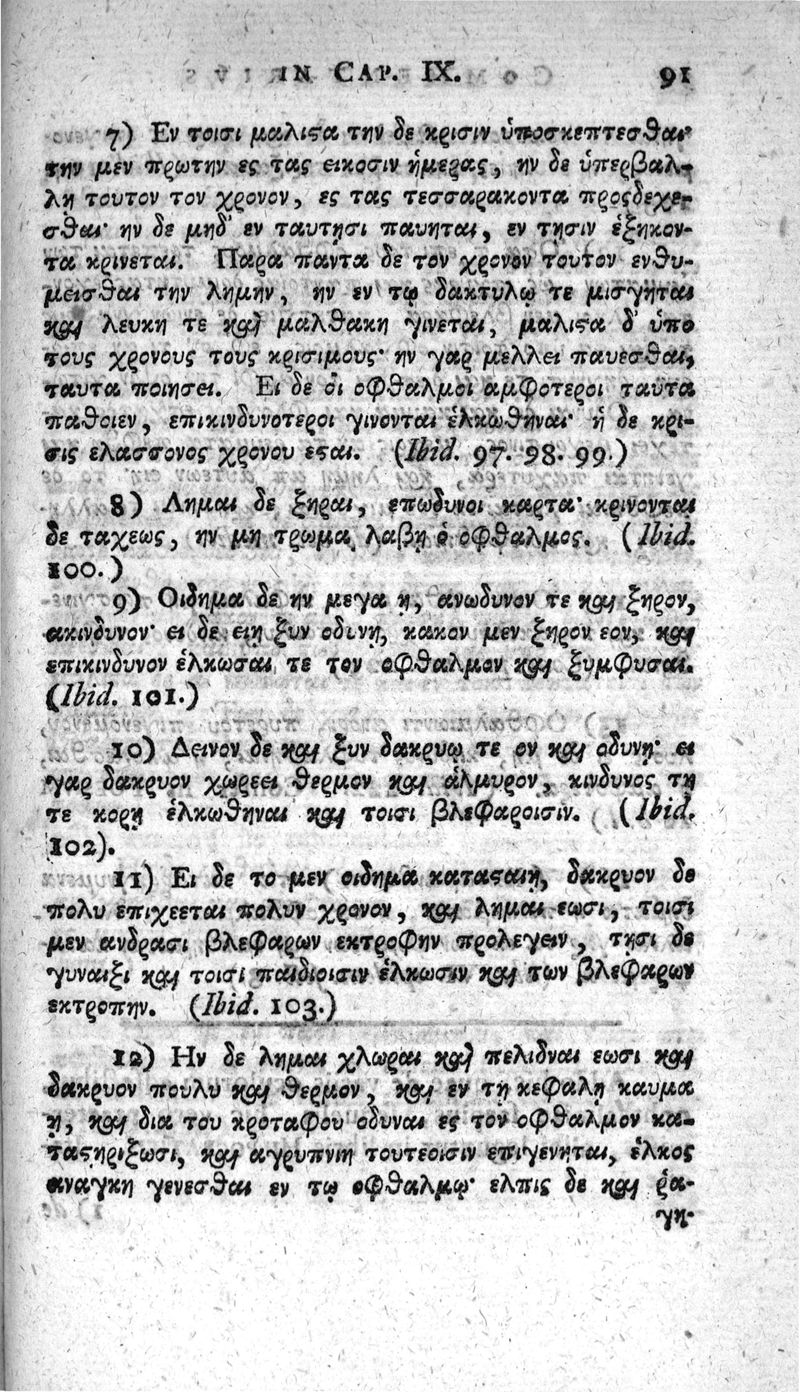 IN CAP. IX. 91
7) Εν τοισι μαλιϛα την δε κρισιν ὑποσκεπτεσθαι·
την μεν πρωτην ες τας εικοσιν ἡμερας, ην δε ὑπερβαλ-
λῃ τουτον τον χρονον, ες τας τεσσαρακοντα προςδεχε-
σθαι· ην δε μηδ' εν ταυτῃσι παυηται, εν τῃσιν ἑξηκον-
τα κρινεται. Παρα παντα δε τον χρονον τουτον ενθυ-
μεισθαι την λημην, ην εν τῳ δακτυλῳ τε μισγηται
και λευκη τε και μαλθακη γινεται, μαλιϛα δ' ὑπο
τους χρονους τους κρισιμους· ην γαρ μελλει παυεσθαι,
ταυτα ποιησει. Ει δε ὁι οφθαλμοι αμφοτεροι ταυτα
παθοιεν, επικινδυνοτεροι γινονται ἑλκωθηναι· ἡ δε κρι-
σις ελασσονος χρονου εϛαι. (Ibid. 97. 98. 99.)
8) Λημαι δε ξηραι, επωδυνοι καρτα· κρινονται
δε ταχεως, ην μη τρωμα λαβῃ ὁ οφθαλμος. (Ibid.
100.)
9) Οιδημα δε ην μεγα ῃ, ανωδυνον τε και ξηρον,
ακινδυνον· ει δε ειη ξυν οδυνῃ, κακον μεν ξηρον εον, και
επικινδυνον ἑλκωσαι τε τον οφθαλμον και ξυμφυσαι.
(Ibid. 101.)
10) Δεινον δε και ξυν δακρυῳ τε ον και οδυνῃ· ει
γαρ δακρυον χωρεει θερμον και ἁλμυρον, κινδυνος τῃ
τε κορῃ ἑλκωθηναι και τοισι βλεφαροισιν. (Ibid.
102).
11) Ει δε το μεν οιδημα καταϛαιη, δακρυον δε
πολυ επιχεεται πολυν χρονον, και λημαι εωσι, τοισι
μεν ανδρασι βλεφαρων εκτροφην προλεγειν, τῃσι δε
γυναιξι και τοισι παιδιοισιν ἑλκωσιν και των βλεφαρων
εκτροπην. (Ibid. 103.)
12) Ην δε λημαι χλωραι και πελιδναι εωσι και
δακρυον πουλυ και θερμον, και εν τῃ κεφαλῃ καυμα
ῃ, και δια του κροταφου οδυναι ες τον οφθαλμον κα-
ταϛηριξωσι, και αγρυπνιη τουτεοισιν επιγενηται, ἑλκος
αναγκη γενεσθαι εν τῳ οφθαλμῳ· ελπις δε και ῥα-
γη·